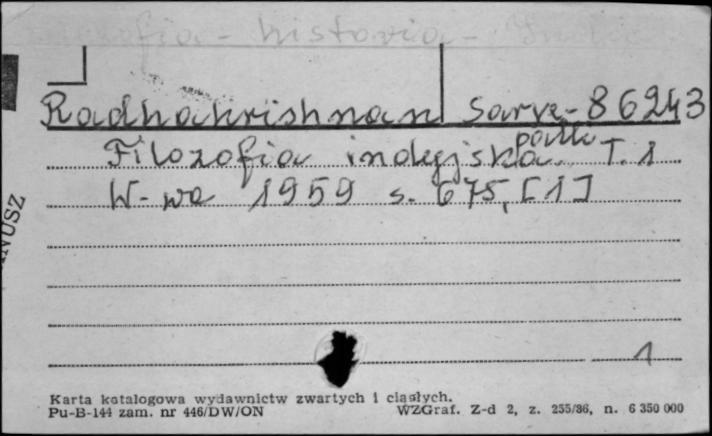 filozofia - historia - Indie
Radhakrishnan Sarve- 86243
palli
Filozofia indyjska. T. 1
W-wa 1959 s. 675, [1]
NUSZ
1
Karta katalogowa wydawnictw zwartych i ciągłych.
Pu-B-144 zam. nr 446/DW/ON WZGraf. Z-d 2, z. 255/86, n. 6 350 000